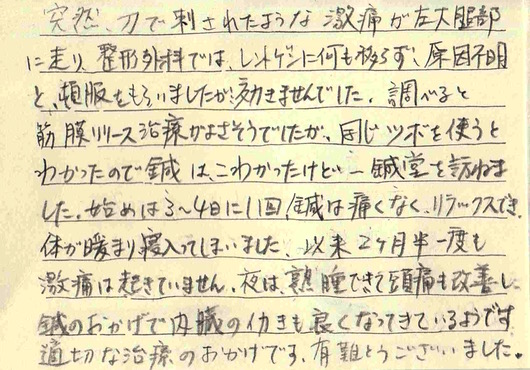 突然、刀で刺されたような激痛が左大腿部
に走り、整形外科では、レントゲンに何も移らず、原因不明
と、頓服をもらいましたが効きませんでした。調べると
筋膜リリース治療がよさそうでしたが、同じツボを使うと
わかったので鍼は、こわかったけど一鍼堂を訪ねま
した。始めは3〜4日に1回、鍼は痛くなく、リラックスでき、
体が暖まり寝入ってしまいました。以来2ヶ月半一度も
激痛は起きていません。夜は、熟睡できて頭痛も改善し、
鍼のおかげで内臓の働きも良くなってきているようです
適切な治療のおかげです。有難とうございました。